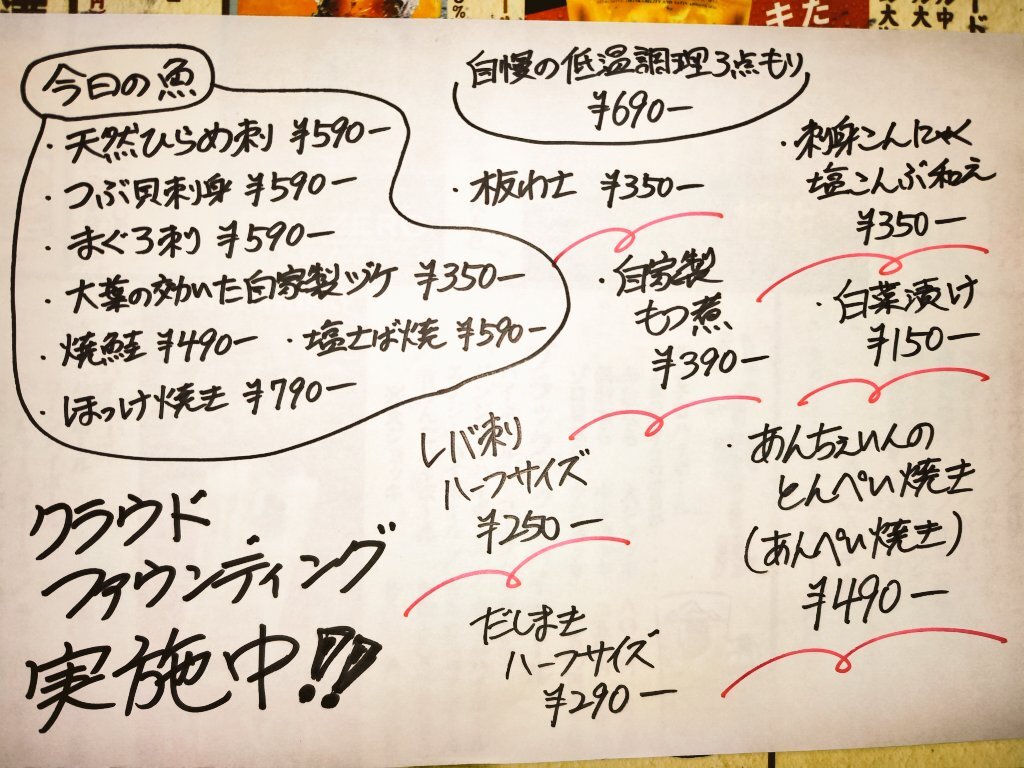 今日の魚
・天然ひらめ刺 ¥590ー
・つぶ貝刺身 ¥590ー
・まぐろ刺 ¥590ー
・大葉の効いた自家製ヅケ ¥350ー
・焼鮭 ¥490ー ・塩さば焼 ¥590ー
・ほっけ焼き ¥790ー
クラウド
ファウンディング
実施中!!
自慢の低温調理3点もり
¥690ー
・板わさ ¥350ー
・刺身こんにゃく
塩こんぶ和え
¥350ー
・自家製
もつ煮
¥390ー
・白菜漬け
¥150ー
レバ刺り
ハーフサイズ
¥250ー
・あんちぇいんの
とんぺい焼き
(あんぺい焼き)
¥490ー
だしまき
ハーフサイズ
¥290ー
きた